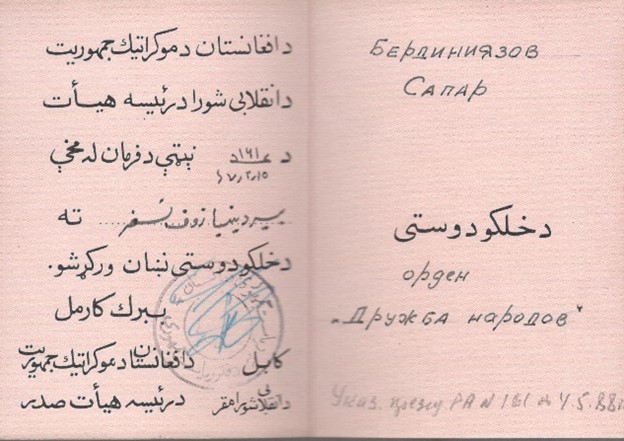 د افغانستان د موکراتيك جمهوريت
د انقلابي شورا د رئيسه هيأت
د ١٦١ د نېټې د فرمان له مخې
ته
د خلکو دوستی نښان ورکړشو.
ببرك کارمل
کابل د افغانستان د موکراتيك جمهوريت
د انقلابي شورا د رئيسه هيأت صدر
Бердиниязов
Сапар
د خلکو دوستی
орден
„Дружба народов"
Указ. През. РА N 161 4.5.88